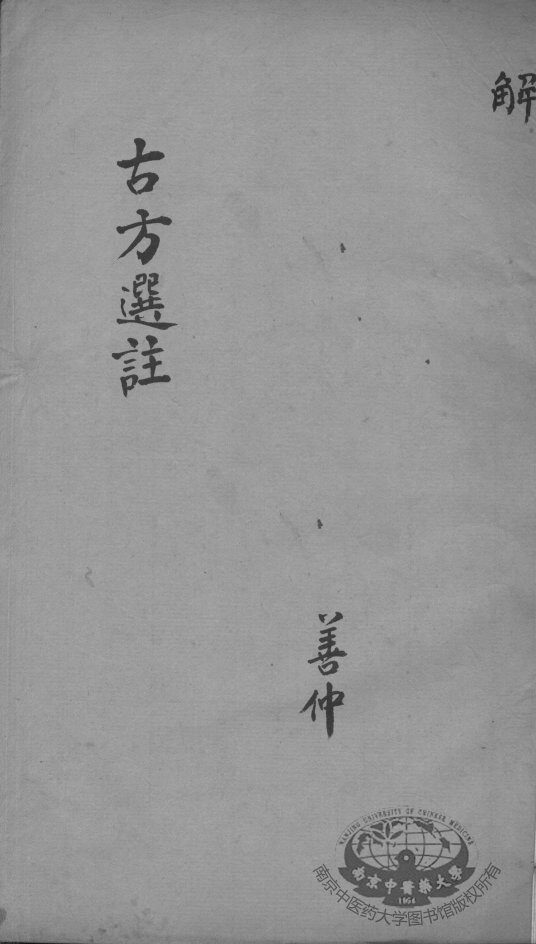 解
善仲
古方選註
NANJING UNIVERSITY OF CHINESE MEDICINE
南京中醫藥大學
1954
南京中医药大学图书馆版权所有